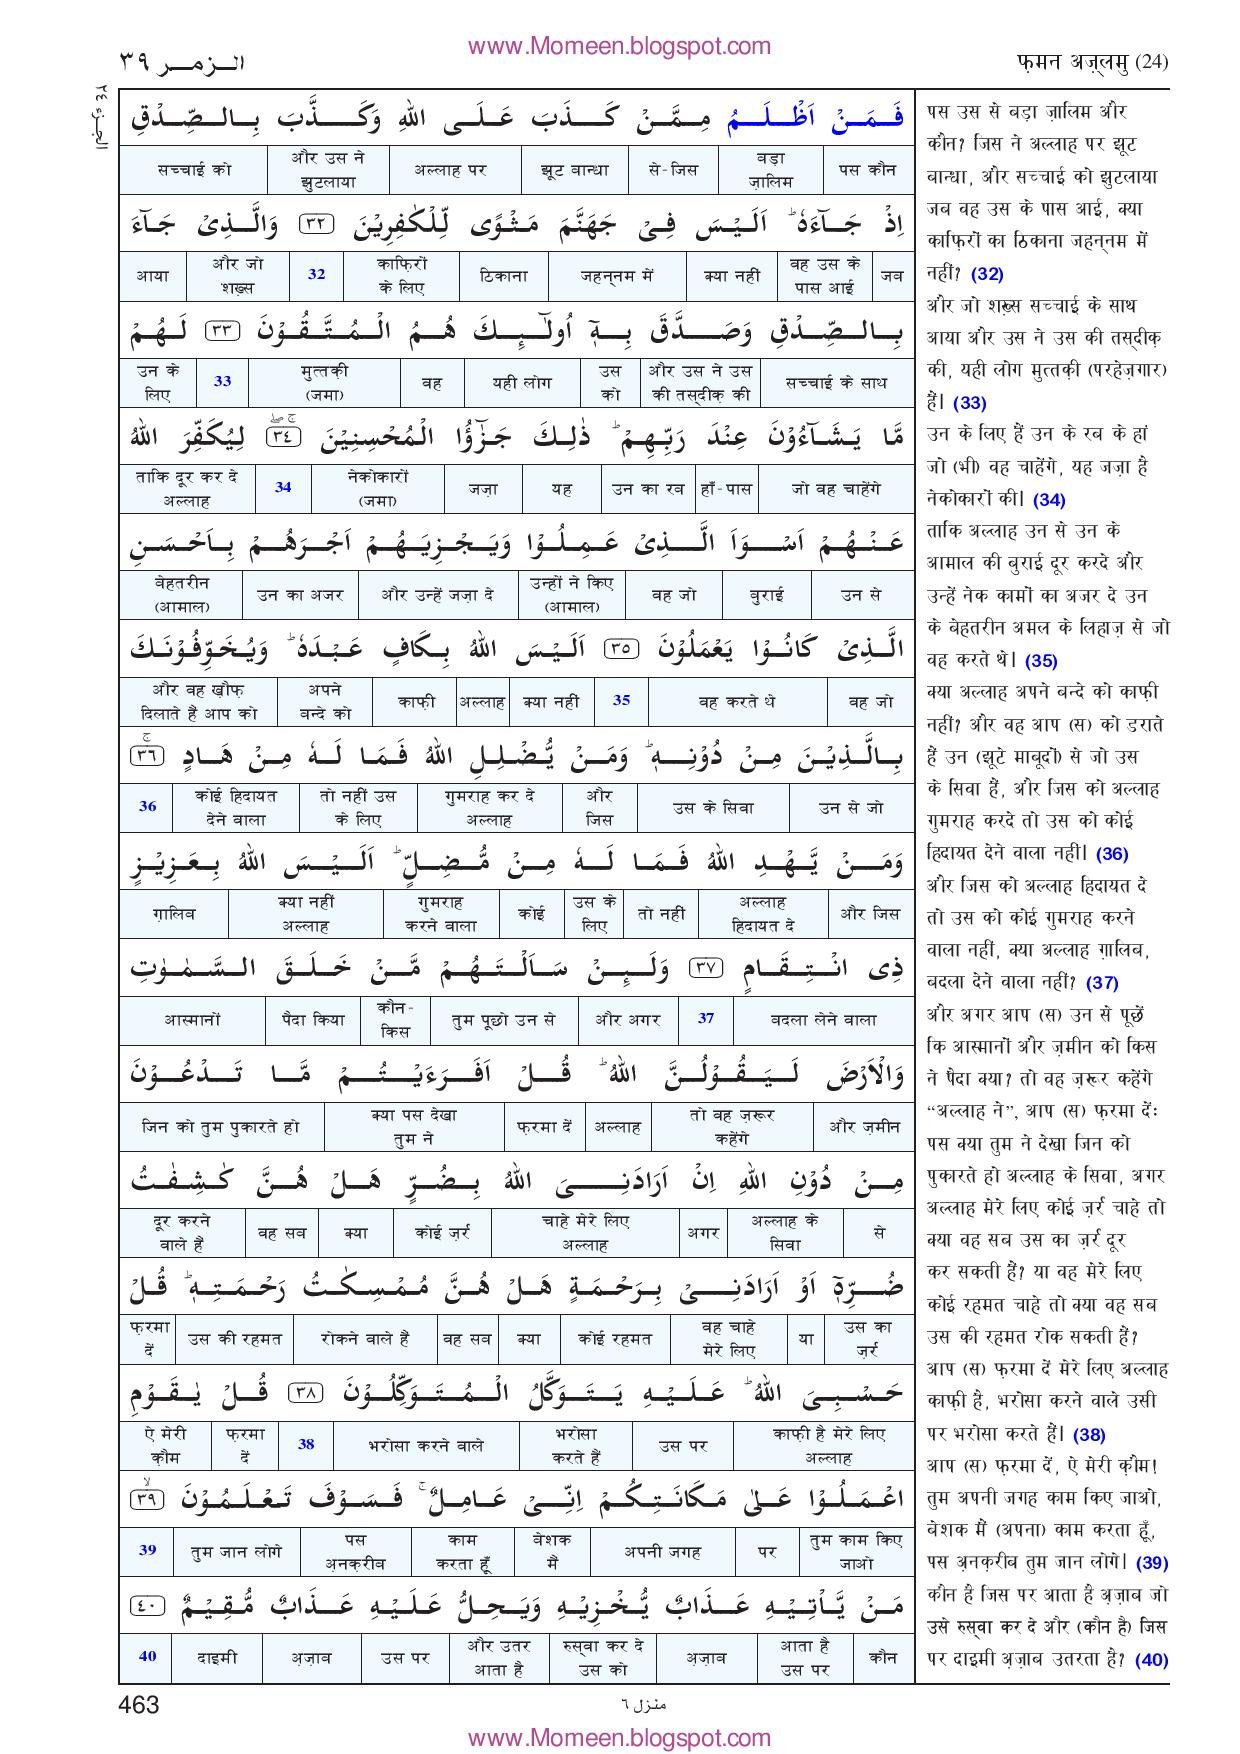 www.Momeen.blogspot.com
الـزمـر ٣٩
फ़मन अज़्लमु (24)
الجزء ٢٤
فَـمَـنْ اَظْـلَـمُ مِـمَّـنْ كَـذَبَ عَـلَـى اللهِ وَكَـذَّبَ بِـالـصِّـدْقِ
सच्चाई को | और उस ने झुटलाया | अल्लाह पर | झूट बान्धा | से-जिस | बड़ा ज़ालिम | पस कौन
اِذْ جَـآءَهٗ ؕ اَلَـيْـسَ فِـىْ جَهَنَّمَ مَـثْـوًى لِّلْكٰفِرِيْنَ ٣٢ وَالَّـذِىْ جَـآءَ
आया | और जो शख़्स | 32 | काफ़िरों के लिए | ठिकाना | जहन्नम में | क्या नहीं | वह उस के पास आई | जब
بِـالـصِّـدْقِ وَصَـدَّقَ بِـهٖۤ اُولٰٓـئِـكَ هُـمُ الْـمُـتَّـقُـوْنَ ٣٣ لَـهُـمْ
उन के लिए | 33 | मुत्तक़ी (जमा) | वह | यही लोग | उस को | और उस ने उस की तस्दीक़ की | सच्चाई के साथ
مَّا يَـشَـآءُوْنَ عِنْدَ رَبِّـهِـمْ ؕ ذٰلِـكَ جَـزٰٓؤُا الْمُحْسِنِيْنَ ٣٤ لِيُكَفِّرَ اللهُ
ताकि दूर कर दे अल्लाह | 34 | नेकोकारों (जमा) | जज़ा | यह | उन का रब | हाँ-पास | जो वह चाहेंगे
عَـنْـهُـمْ اَسْـوَاَ الَّـذِىْ عَـمِـلُـوْا وَيَـجْـزِيَـهُـمْ اَجْـرَهُـمْ بِـاَحْـسَـنِ
बेहतरीन (आमाल) | उन का अजर | और उन्हें जज़ा दे | उन्हों ने किए (आमाल) | वह जो | बुराई | उन से
الَّـذِىْ كَانُـوْا يَعْمَلُوْنَ ٣٥ اَلَـيْـسَ اللهُ بِـكَافٍ عَـبْـدَهٗ ؕ وَيُـخَـوِّفُـوْنَـكَ
और वह ख़ौफ़ दिलाते हैं आप को | अपने बन्दे को | काफ़ी | अल्लाह | क्या नहीं | 35 | वह करते थे | वह जो
بِـالَّـذِيْـنَ مِـنْ دُوْنِـهٖ ؕ وَمَـنْ يُّـضْـلِـلِ اللهُ فَـمَـا لَـهٗ مِـنْ هَـادٍ ٣٦
36 | कोई हिदायत देने वाला | तो नहीं उस के लिए | गुमराह कर दे अल्लाह | और जिस | उस के सिवा | उन से जो
وَمَـنْ يَّـهْـدِ اللهُ فَـمَـا لَـهٗ مِـنْ مُّـضِـلٍّ ؕ اَلَـيْـسَ اللهُ بِـعَـزِيْـزٍ
ग़ालिब | क्या नहीं अल्लाह | गुमराह करने वाला | कोई | उस के लिए | तो नहीं | अल्लाह हिदायत दे | और जिस
ذِى انْـتِـقَـامٍ ٣٧ وَلَـئِـنْ سَـاَلْـتَـهُـمْ مَّـنْ خَـلَـقَ الـسَّـمٰـوٰتِ
आस्मानों | पैदा किया | कौन-किस | तुम पूछो उन से | और अगर | 37 | बदला लेने वाला
وَالْاَرْضَ لَـيَـقُـوْلُـنَّ اللهُ ؕ قُـلْ اَفَـرَءَيْـتُـمْ مَّـا تَـدْعُـوْنَ
जिन को तुम पुकारते हो | क्या पस देखा तुम ने | फ़रमा दें | अल्लाह | तो वह ज़रूर कहेंगे | और ज़मीन
مِـنْ دُوْنِ اللهِ اِنْ اَرَادَنِـىَ اللهُ بِـضُـرٍّ هَـلْ هُـنَّ كٰـشِـفٰـتُ
दूर करने वाले हैं | वह सब | क्या | कोई ज़र्र | चाहे मेरे लिए अल्लाह | अगर | अल्लाह के सिवा | से
ضُـرِّهٖۤ اَوْ اَرَادَنِـىْ بِـرَحْـمَـةٍ هَـلْ هُـنَّ مُـمْـسِـكٰـتُ رَحْـمَـتِـهٖ ؕ قُـلْ
फ़रमा दें | उस की रहमत | रोकने वाले हैं | वह सब | क्या | कोई रहमत | वह चाहे मेरे लिए | या | उस का ज़र्र
حَـسْـبِـىَ اللهُ ؕ عَـلَـيْـهِ يَـتَـوَكَّلُ الْـمُـتَـوَكِّلُـوْنَ ٣٨ قُـلْ يٰـقَـوْمِ
ऐ मेरी क़ौम | फ़रमा दें | 38 | भरोसा करने वाले | भरोसा करते हैं | उस पर | काफ़ी है मेरे लिए अल्लाह
اعْـمَـلُـوْا عَـلٰى مَـكَانَـتِـكُـمْ اِنِّـىْ عَـامِـلٌ ۚ فَـسَـوْفَ تَـعْـلَـمُـوْنَ ٣٩
39 | तुम जान लोगे | पस अ़नक़रीब | काम करता हूँ | बेशक मैं | अपनी जगह | पर | तुम काम किए जाओ
مَـنْ يَّـاْتِـيْـهِ عَـذَابٌ يُّـخْـزِيْـهِ وَيَـحِـلُّ عَـلَـيْـهِ عَـذَابٌ مُّـقِـيْـمٌ ٤٠
40 | दाइमी | अ़ज़ाब | उस पर | और उतर आता है | रुस्वा कर दे उस को | अ़ज़ाब | आता है उस पर | कौन
पस उस से बड़ा ज़ालिम और
कौन? जिस ने अल्लाह पर झूट
बान्धा, और सच्चाई को झुटलाया
जब वह उस के पास आई, क्या
काफ़िरों का ठिकाना जहन्नम में
नहीं? (32)
और जो शख़्स सच्चाई के साथ
आया और उस ने उस की तस्दीक़
की, यही लोग मुत्तक़ी (परहेज़गार)
हैं। (33)
उन के लिए हैं उन के रब के हां
जो (भी) वह चाहेंगे, यह जज़ा है
नेकोकारों की। (34)
ताकि अल्लाह उन से उन के
आमाल की बुराई दूर करदे और
उन्हें नेक कामों का अजर दे उन
के बेहतरीन अमल के लिहाज़ से जो
वह करते थे। (35)
क्या अल्लाह अपने बन्दे को काफ़ी
नहीं? और वह आप (स) को डराते
हैं उन (झूटे माबूदों) से जो उस
के सिवा हैं, और जिस को अल्लाह
गुमराह करदे तो उस को कोई
हिदायत देने वाला नहीं। (36)
और जिस को अल्लाह हिदायत दे
तो उस को कोई गुमराह करने
वाला नहीं, क्या अल्लाह ग़ालिब,
बदला देने वाला नहीं? (37)
और अगर आप (स) उन से पूछें
कि आस्मानों और ज़मीन को किस
ने पैदा क्या? तो वह ज़रूर कहेंगे
“अल्लाह ने”, आप (स) फ़रमा देंः
पस क्या तुम ने देखा जिन को
पुकारते हो अल्लाह के सिवा, अगर
अल्लाह मेरे लिए कोई ज़र्र चाहे तो
क्या वह सब उस का ज़र्र दूर
कर सकती हैं? या वह मेरे लिए
कोई रहमत चाहे तो क्या वह सब
उस की रहमत रोक सकती हैं?
आप (स) फ़रमा दें मेरे लिए अल्लाह
काफ़ी है, भरोसा करने वाले उसी
पर भरोसा करते हैं। (38)
आप (स) फ़रमा दें, ऐ मेरी क़ौम!
तुम अपनी जगह काम किए जाओ,
बेशक मैं (अपना) काम करता हूँ,
पस अ़नक़रीब तुम जान लोगे। (39)
कौन है जिस पर आता है अ़ज़ाब जो
उसे रुस्वा कर दे और (कौन है) जिस
पर दाइमी अ़ज़ाब उतरता है? (40)
463
منزل ٦
www.Momeen.blogspot.com